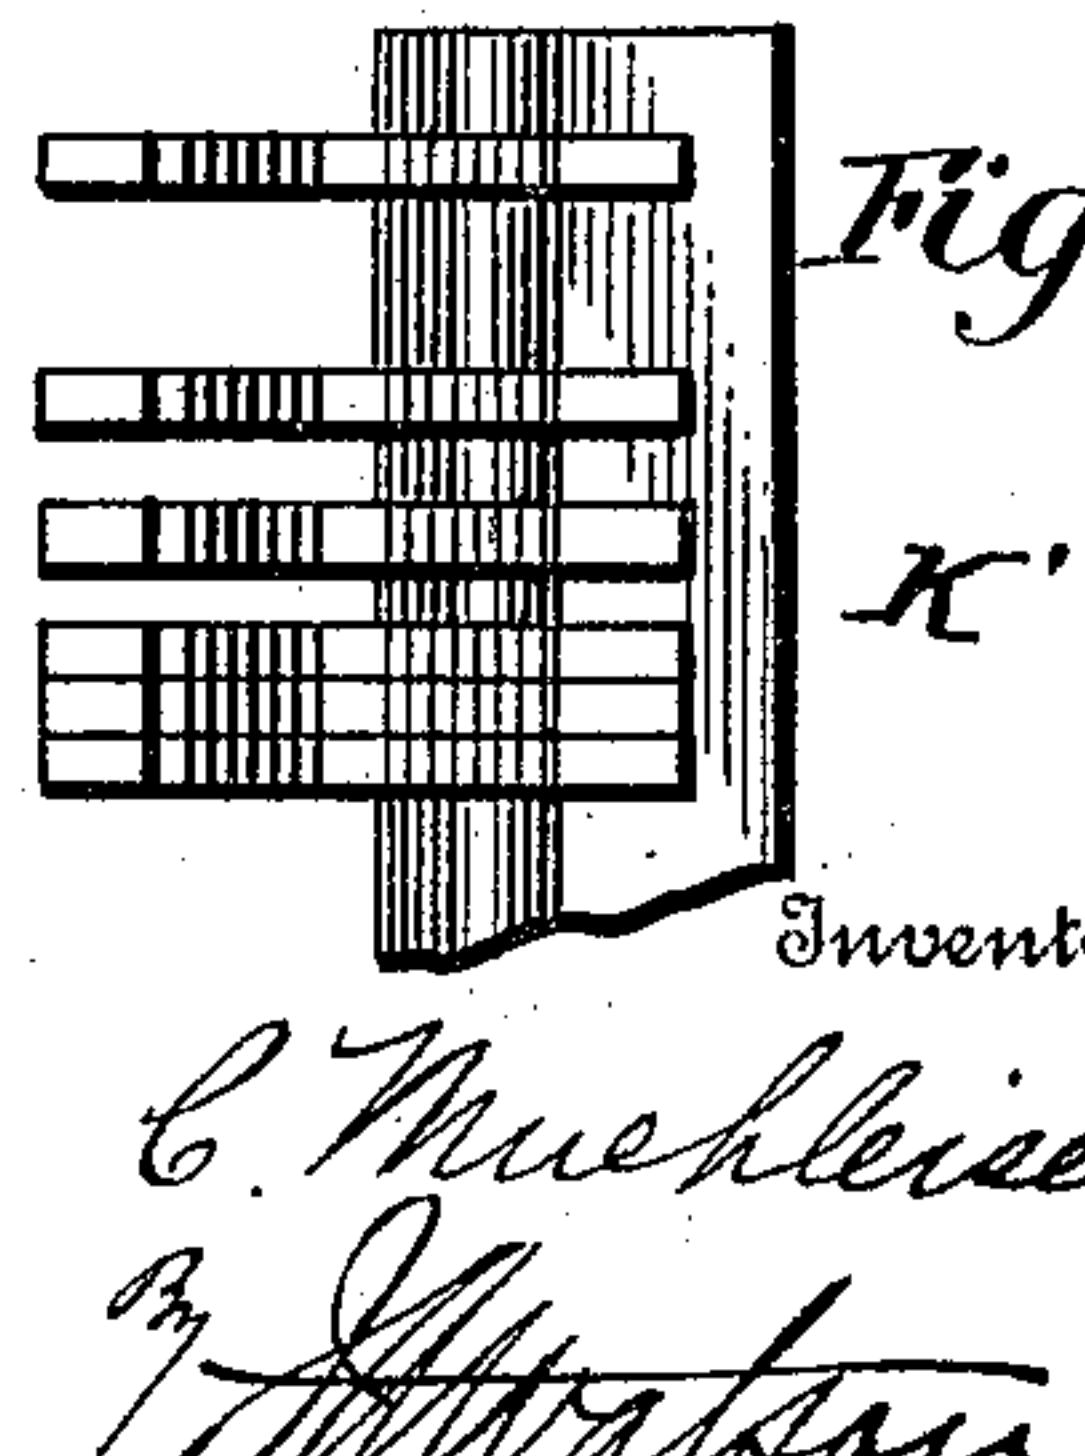 Fig
K'
Invento
C. Muehleise
By